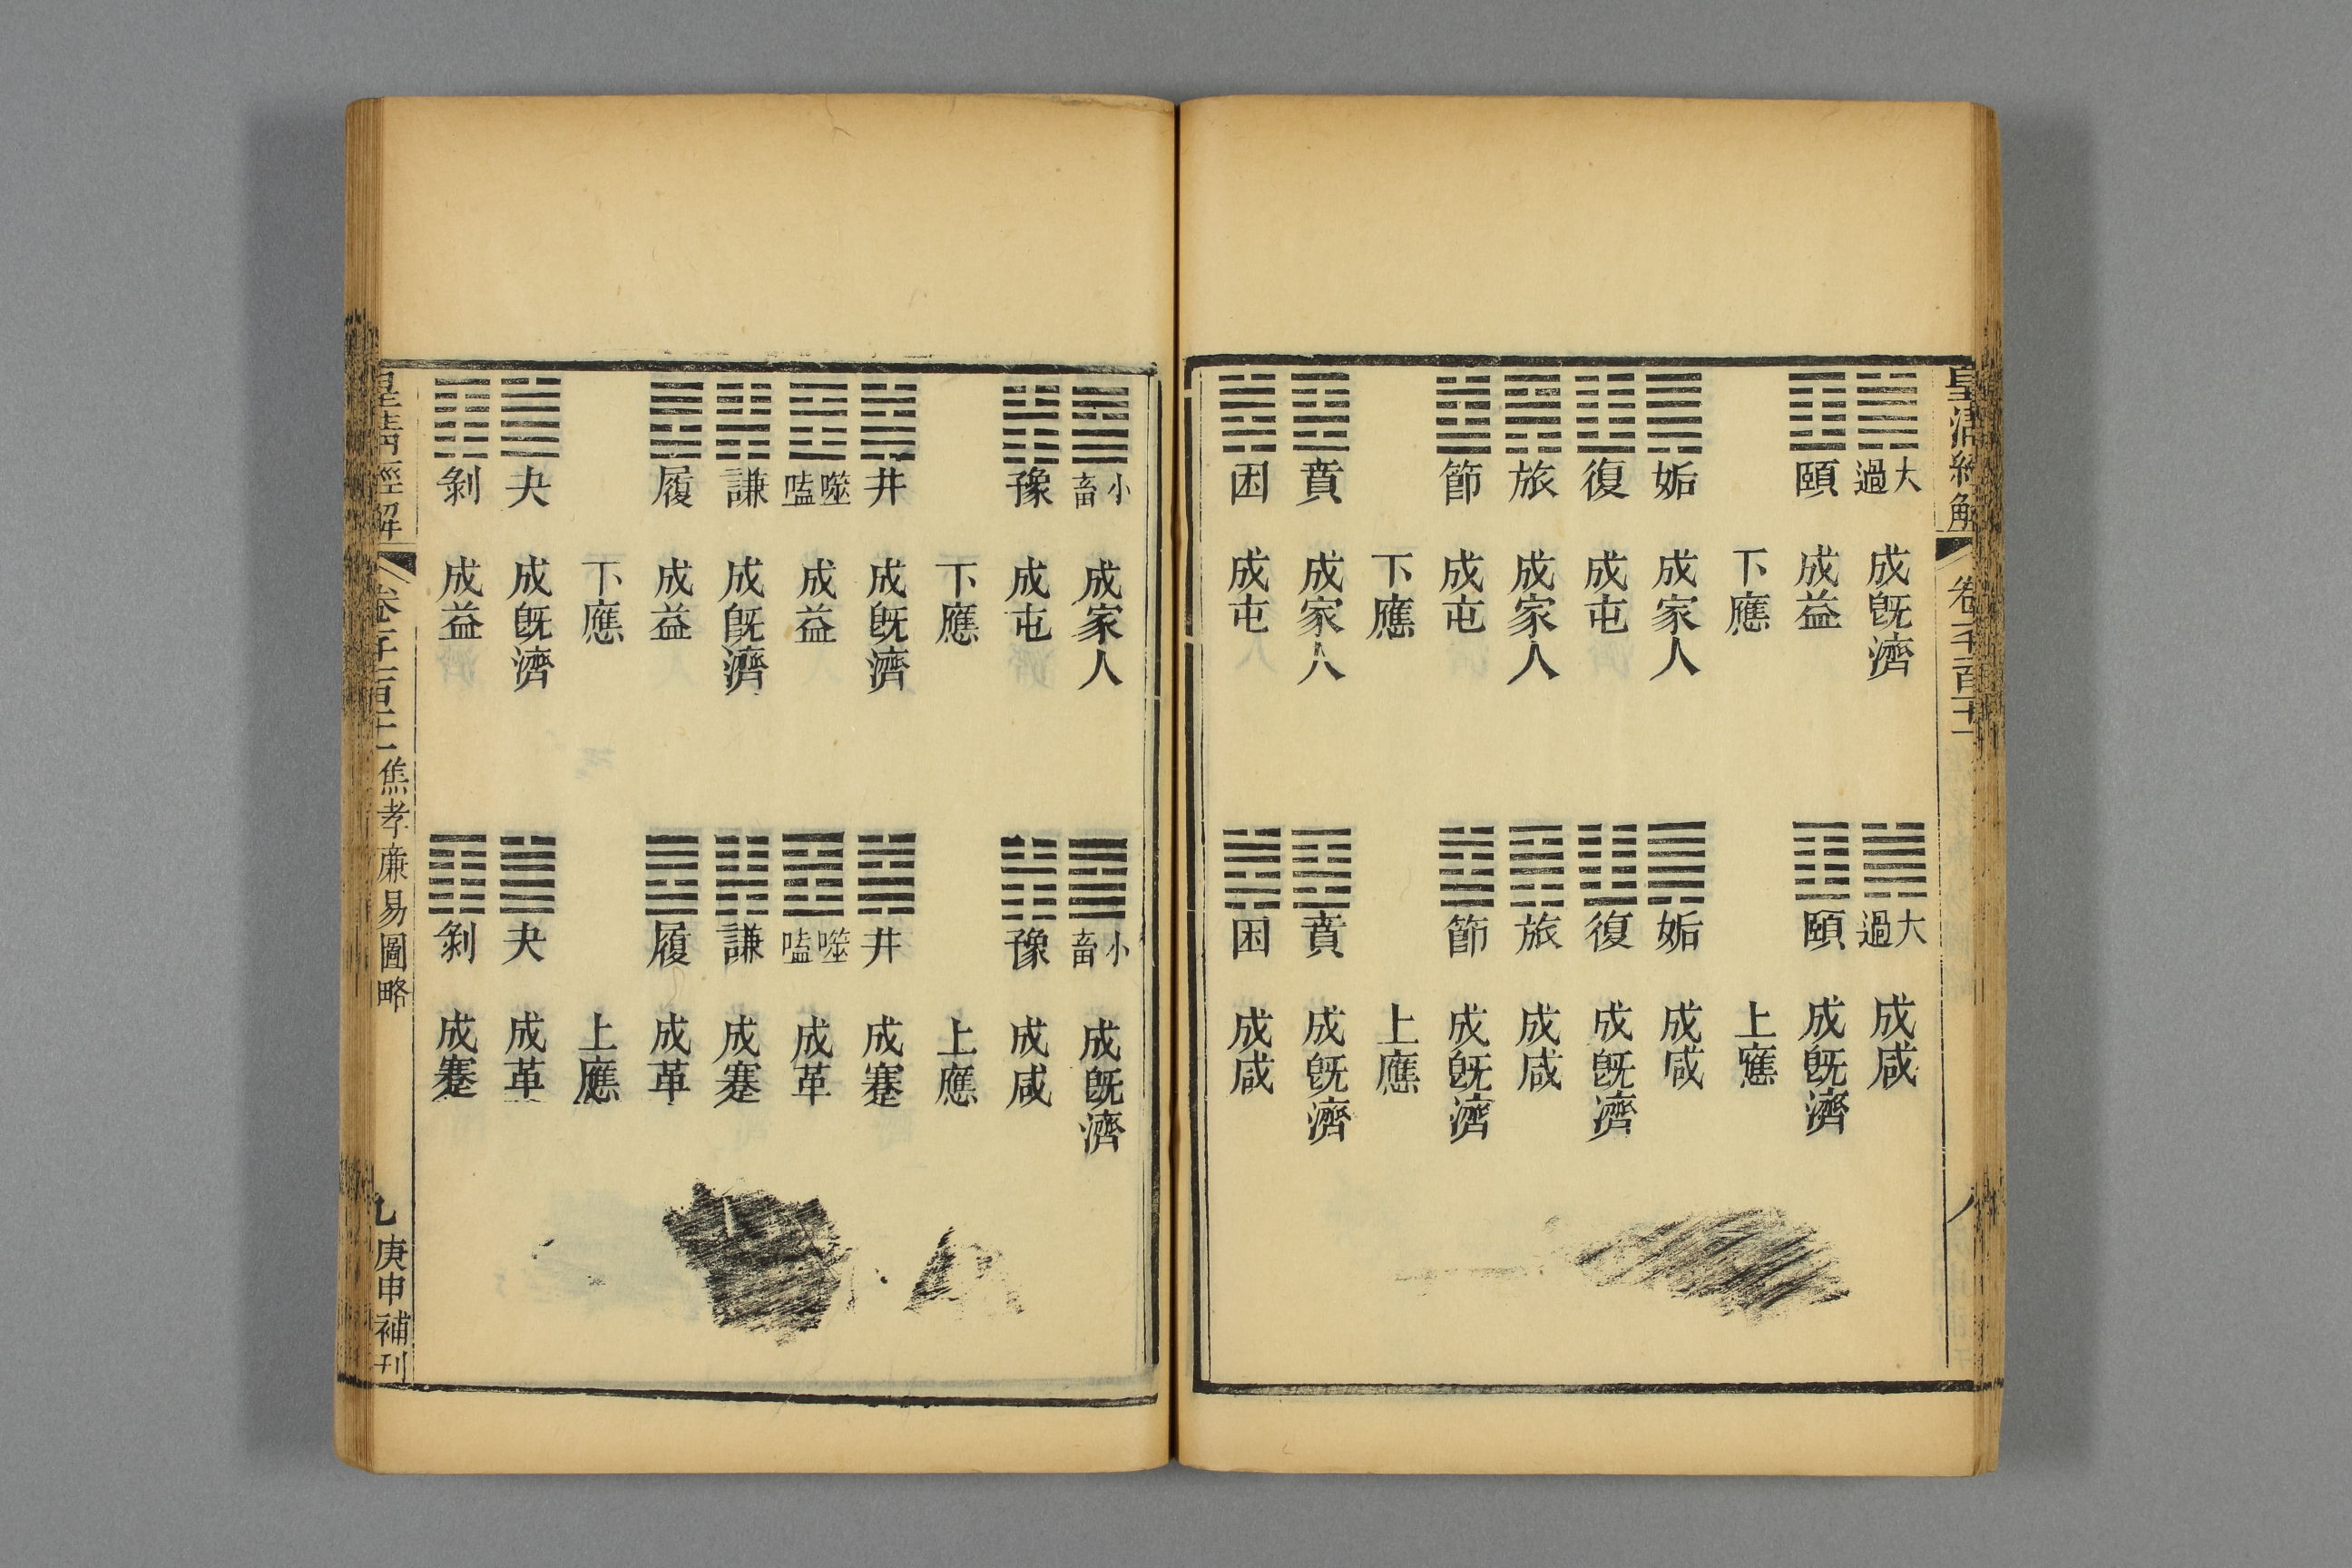 皇清經解
卷一千一百一十一
八
大過 成旣濟
頤 成益
下應
姤 成家人
復 成屯
旅 成家人
節 成屯
下應
賁 成家人
困 成屯
大過 成咸
頤 成旣濟
上應
姤 成咸
復 成旣濟
旅 成咸
節 成旣濟
上應
賁 成旣濟
困 成咸
小畜 成家人
豫 成屯
下應
井 成旣濟
噬嗑 成益
謙 成旣濟
履 成益
下應
夬 成旣濟
剝 成益
小畜 成旣濟
豫 成咸
上應
井 成蹇
噬嗑 成革
謙 成蹇
履 成革
上應
夬 成革
剝 成蹇
皇清經解
焦孝廉易圖略
九
庚申補刊